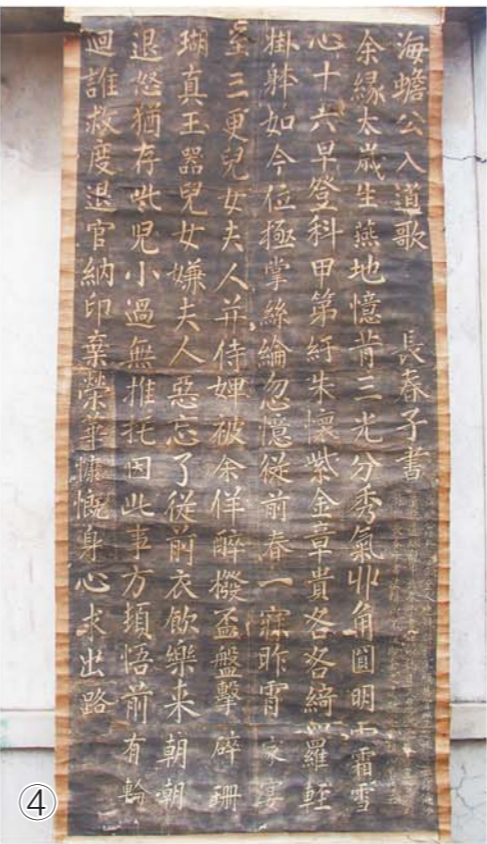 海蟾公入道歌 長春子書
余緣太歲生燕地憶昔三光分秀氣丱角圓明霜雪
心十六早登科甲第紆朱懷紫金章貴各各綺羅輕
掛躰如今位極掌絲綸忽憶從前春一寐昨宵家宴
至三更兒女夫人并侍婢被余佯醉撥盃盤擊碎珊
瑚真玉器兒女嫌夫人惡忘了從前衣飲樂来朝朝
退怒猶存些兒小過無推托因此事方頓悟前有輪
迴誰救度退官納印棄榮華慷慨身心求出路
④